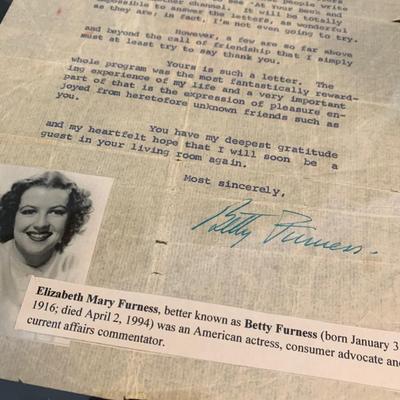 people write
see "At Your Beck and
another channel. It will be totally
impossible to answer the letters, as wonderful
as they are; in fact, I'm not even going to try.
However, a few are so far above
and beyond the call of friendship that I simply
must at least try to say thank you.
Yours is such a letter. The
whole program was the most fantastically reward-
ing experience of my life and a very important
part of that is the expression of pleasure en-
joyed from heretofore unknown friends such as
you.
You have my deepest gratitude
and my heartfelt hope that I will soon be a
guest in your living room again.
Most sincerely,
Betty Furness.
Elizabeth Mary Furness, better known as Betty Furness (born January 3
1916; died April 2, 1994) was an American actress, consumer advocate and
current affairs commentator.